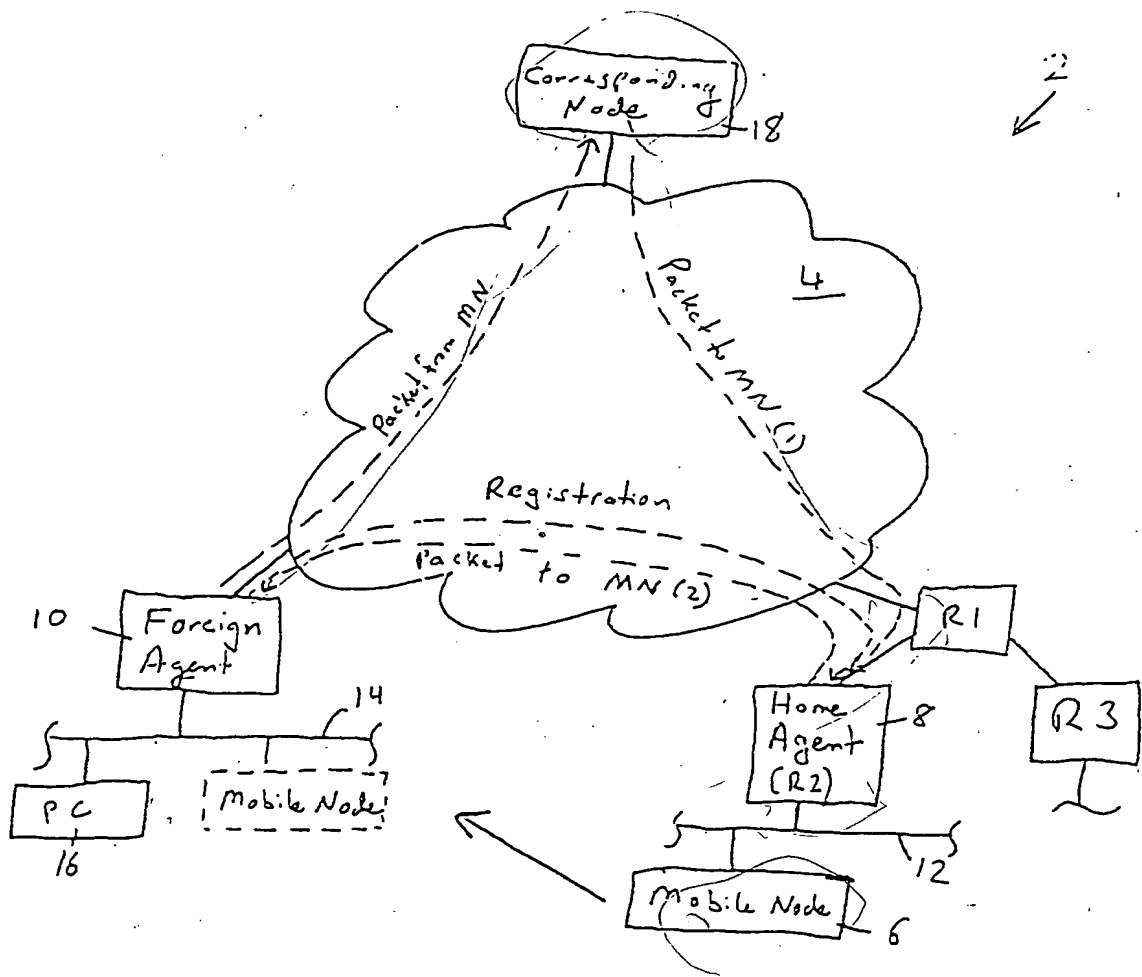 Corresponding
Node
18
2
4
Packet from MN
Packet to MN (1)
Registration
Packet to MN (2)
10
Foreign
Agent
R1
14
Home
Agent
(R2)
8
R3
PC
16
Mobile Node
12
Mobile Node
6